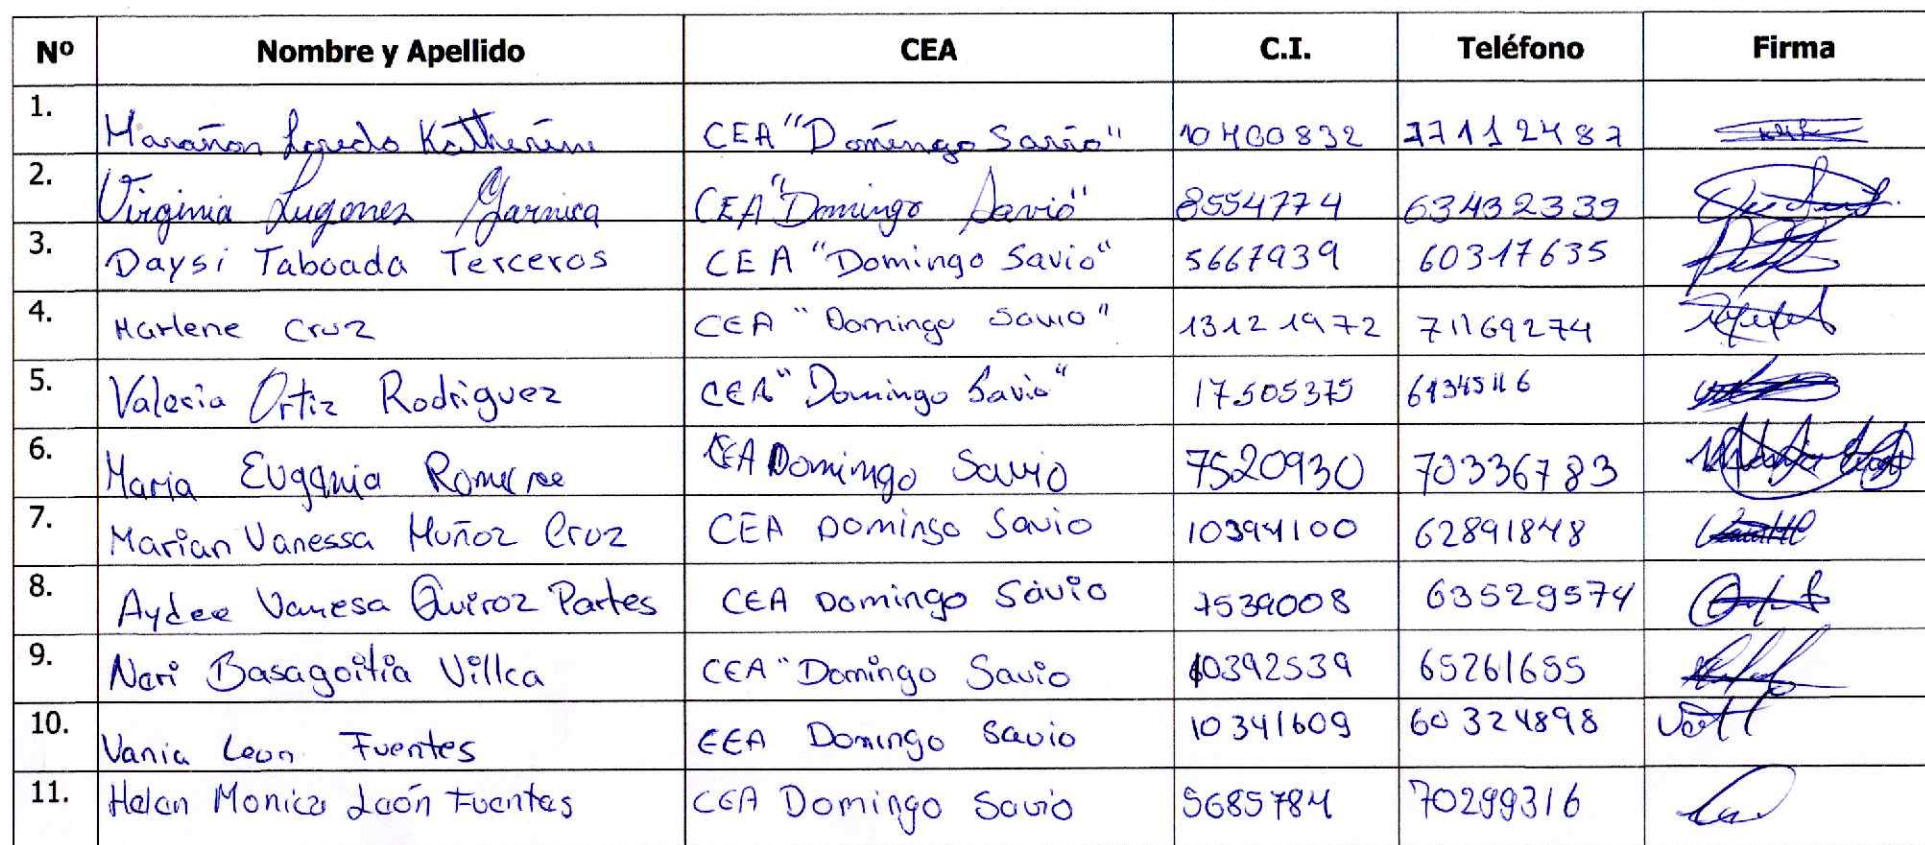 Nº Nombre y Apellido CEA C.I. Teléfono Firma
1. Marañon Loredo Katherine CEA "Domingo Savio" 10400832 77112487
2. Virginia Lugones Garnica CEA "Domingo Savio" 8554774 63432339
3. Daysi Taboada Terceros CEA "Domingo Savio" 5667939 60317635
4. Marlene Cruz CEA "Domingo Savio" 13121972 71169274
5. Valeria Ortiz Rodriguez CEA "Domingo Savio" 17505375
6. Maria Eugenia CEA Domingo Savio 7520930 70336783
7. Marian Vanessa Muñoz Cruz CEA Domingo Savio 10394100 62891848
8. Aydee Vanesa Quiroz Partes CEA Domingo Savio 7539008 63529574
9. Neri Basagoitia Villca CEA "Domingo Savio 10392539 65261655
10. Vania Leon Fuentes CEA Domingo Savio 10341609 60324898
11. Helen Monica León Fuentes CEA Domingo Savio 5685784 70299316